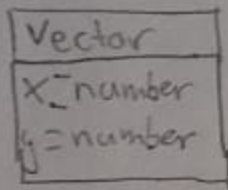 Vector
x = number
y = number